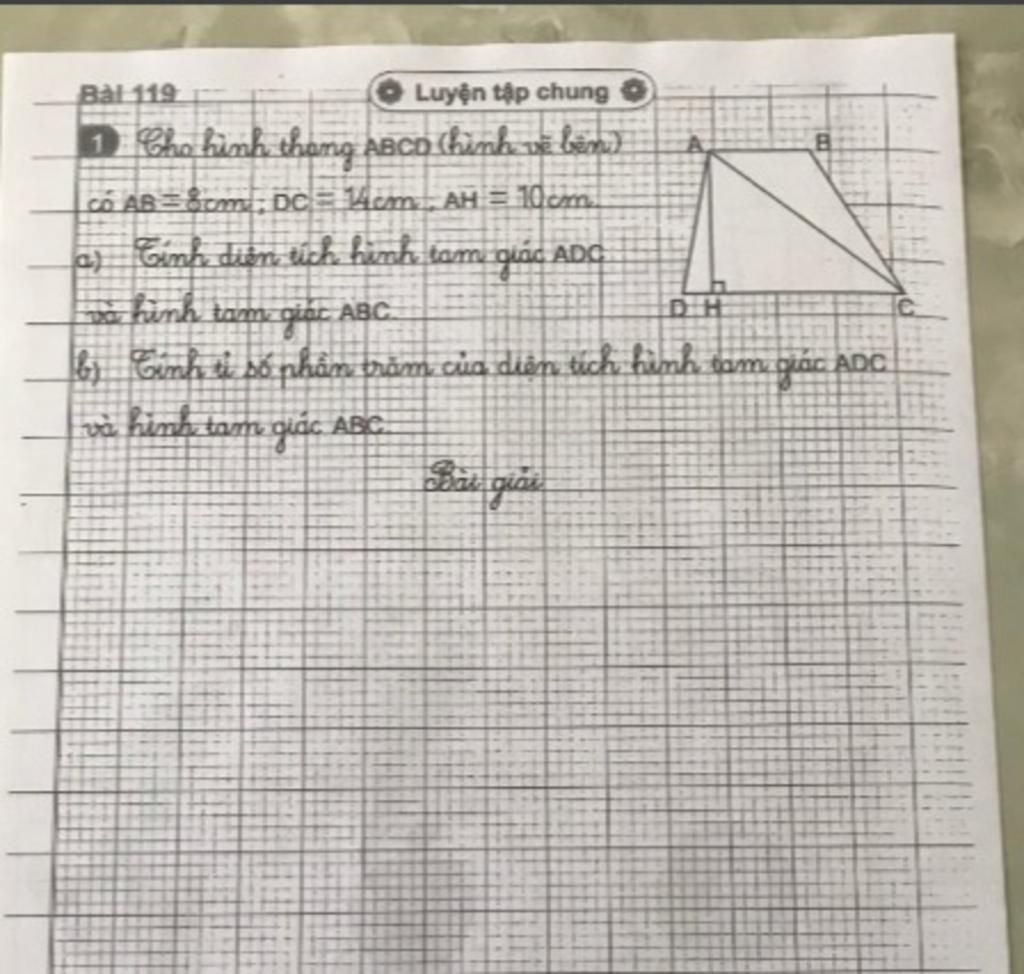 Bài 119
Luyện tập chung
1 Cho hình thang ABCD (hình vẽ bên)
có AB = 8cm ; DC = 14cm , AH = 10cm.
a) Tính diện tích hình tam giác ADC
và hình tam giác ABC.
b) Tính tỉ số phần trăm của diện tích hình tam giác ADC
và hình tam giác ABC.
Bài giải
A B
D H C